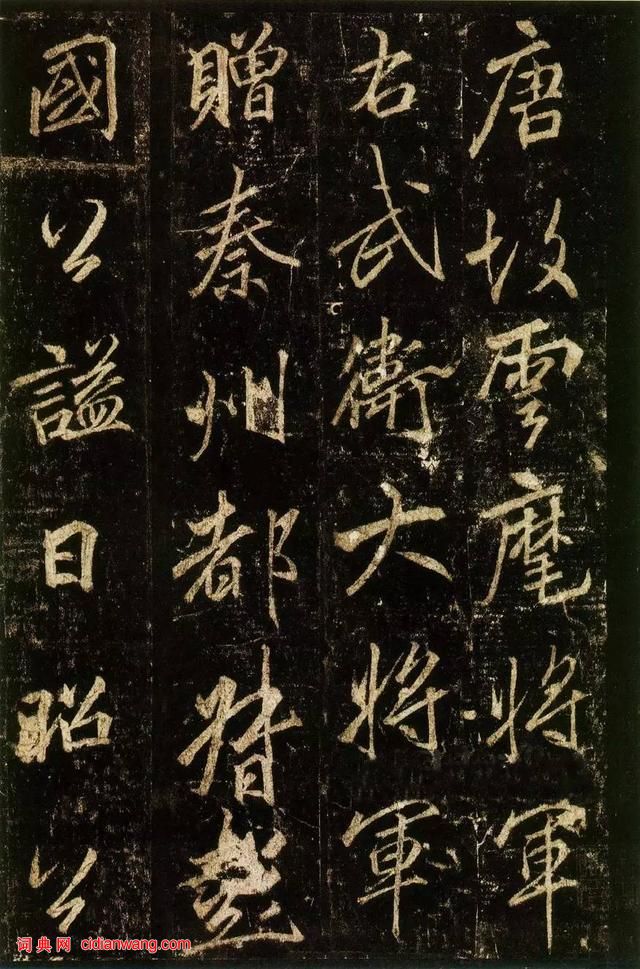 唐故雲麾將軍
右武衛大將軍
贈秦州都督彭
國公謚曰昭公
词典网 cidianwang.com